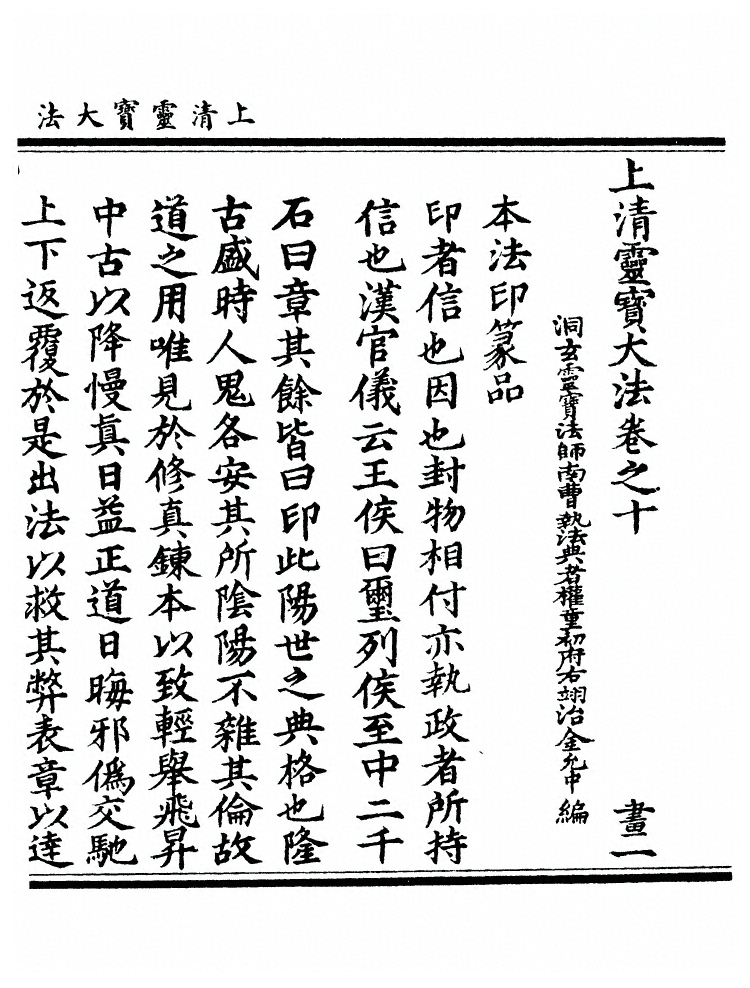 上清靈寶大法
上清靈寶大法卷之十 畫一
洞玄靈寶法師南曹執法典者權童初府右翊治金允中編
本法印篆品
印者信也因也封物相付亦執政者所持
信也漢官儀云王侯曰璽列侯至中二千
石曰章其餘皆曰印此陽世之典格也隆
古盛時人鬼各安其所陰陽不雜其倫故
道之用唯見於修真鍊本以致輕舉飛昇
中古以降慢真日益正道日晦邪僞交馳
上下返覆於是出法以救其弊表章以達